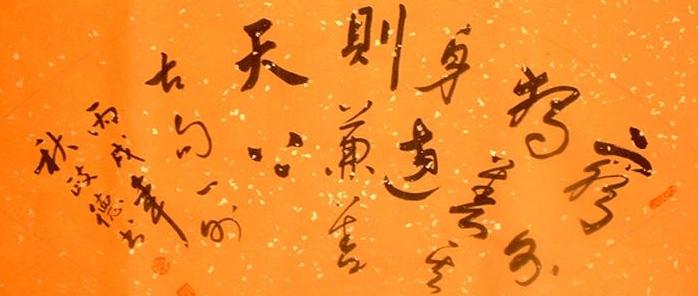 窮
則獨
善其
身達
則兼善
天下
古句一則
丙戌年
秋政德书